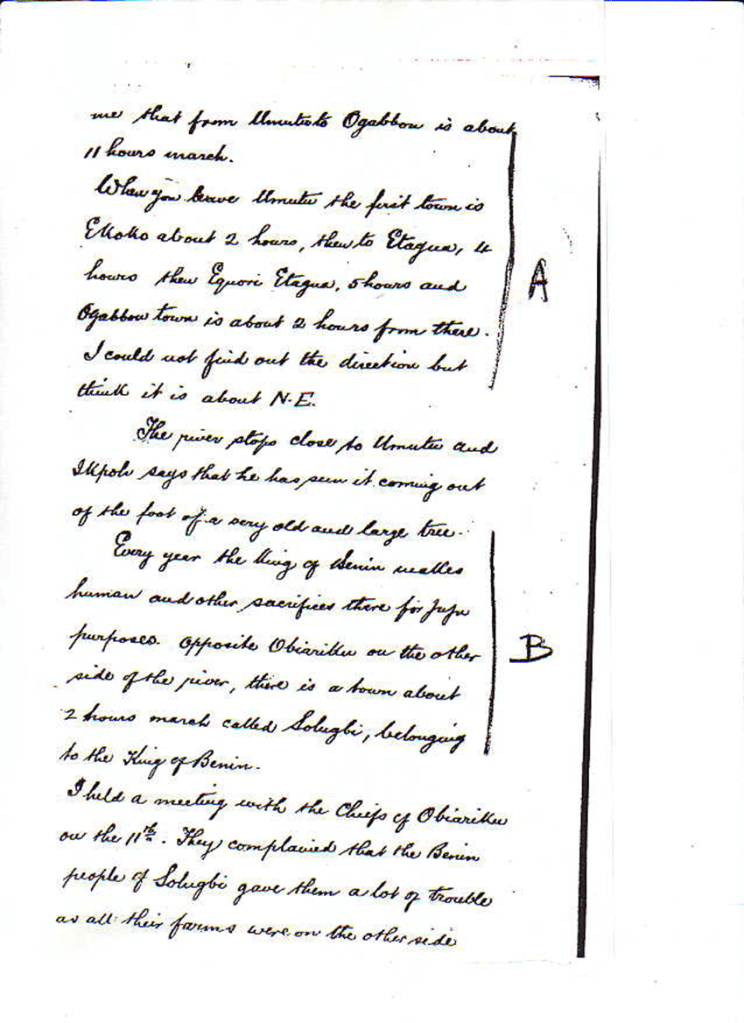 me that from Umutu to Ogabbou is about
11 hours march.
When you leave Umutu the first town is
EKoKo about 2 hours, then to Etagua, 4
hours then Equori Etagua, 5 hours and
Ogabbou town is about 2 hours from there.
I could not find out the direction but
think it is about N.E.
A
The river stops close to Umutu and
IKpoh says that he has seen it coming out
of the foot of a very old and large tree.
Every year the King of Benin makes
human and other sacrifices there for Juju
purposes. Opposite Obiariku on the other
side of the river, there is a town about
2 hours march called Solugbi, belonging
to the King of Benin.
B
I held a meeting with the Chiefs of Obiariku
on the 11th. They complained that the Benin
people of Solugbi gave them a lot of trouble
as all their farms were on the other side